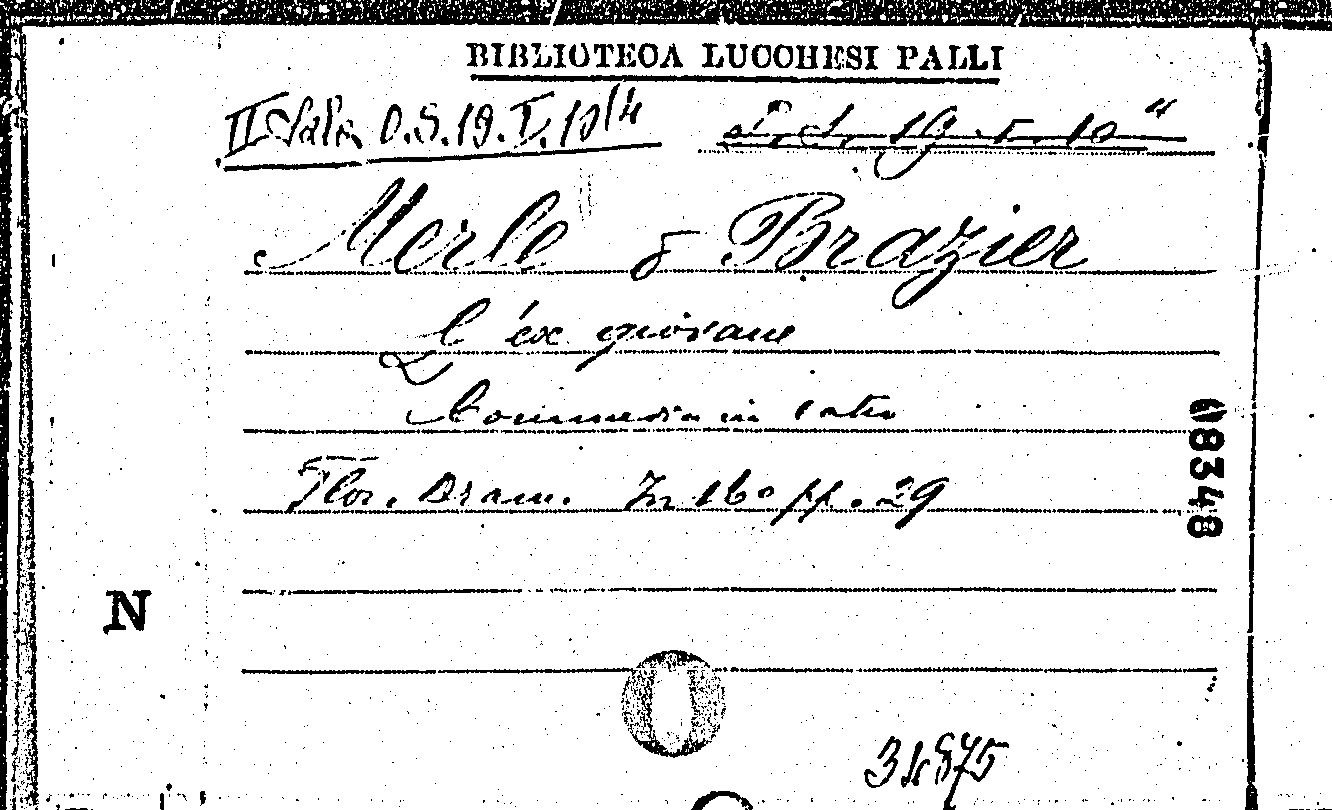 BIBLIOTECA LUCCHESI PALLI
II Sala O.S.19.I.10/4
19.I.10 4
Merle & Brazier
L'ex giovane
Commedia in 1 atto
Flor. Dram. In 16º pp. 29
08348
N
34875